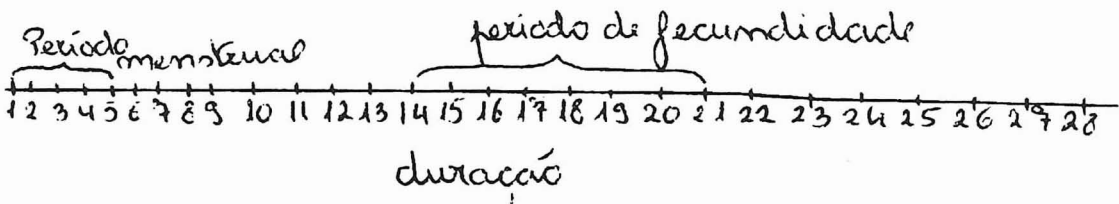 Período menstrual
período de fecundidade
1 2 3 4 5 6 7 8 9 10 11 12 13 14 15 16 17 18 19 20 21 22 23 24 25 26 27 28
duração